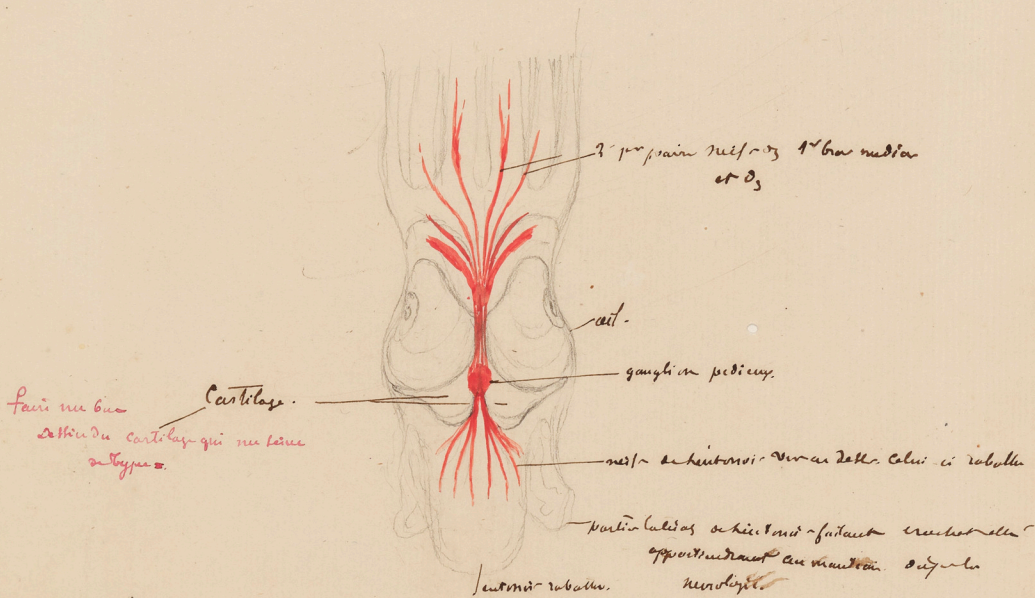 2e pr paire nerfs des 1er bras median
et d3
œil.
ganglion pedieux.
Cartilage.
faire un bon
dessin du cartilage qui me serve
de type.
nerfs de l'entonnoir vu en dessous celui-ci rabattu
parties latérales de l'entonnoir faisant crochet elles
appartiendraient au manteau
nevrologie.
entonnoir rabattu.